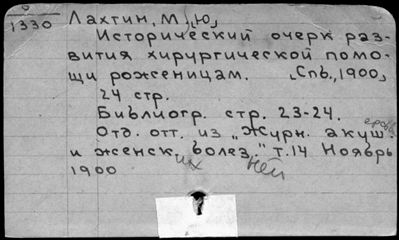 6
1330
Лахтин, М[ю]
Исторический очерк раз-
вития хирургической помо-
щи роженицам. [Спб., 1900]
24 стр.
Библиогр. стр. 23-24.
Отд. отт. из „Журн. акуш.
и женск их болез ней" т. 14 Ноябрь
1900